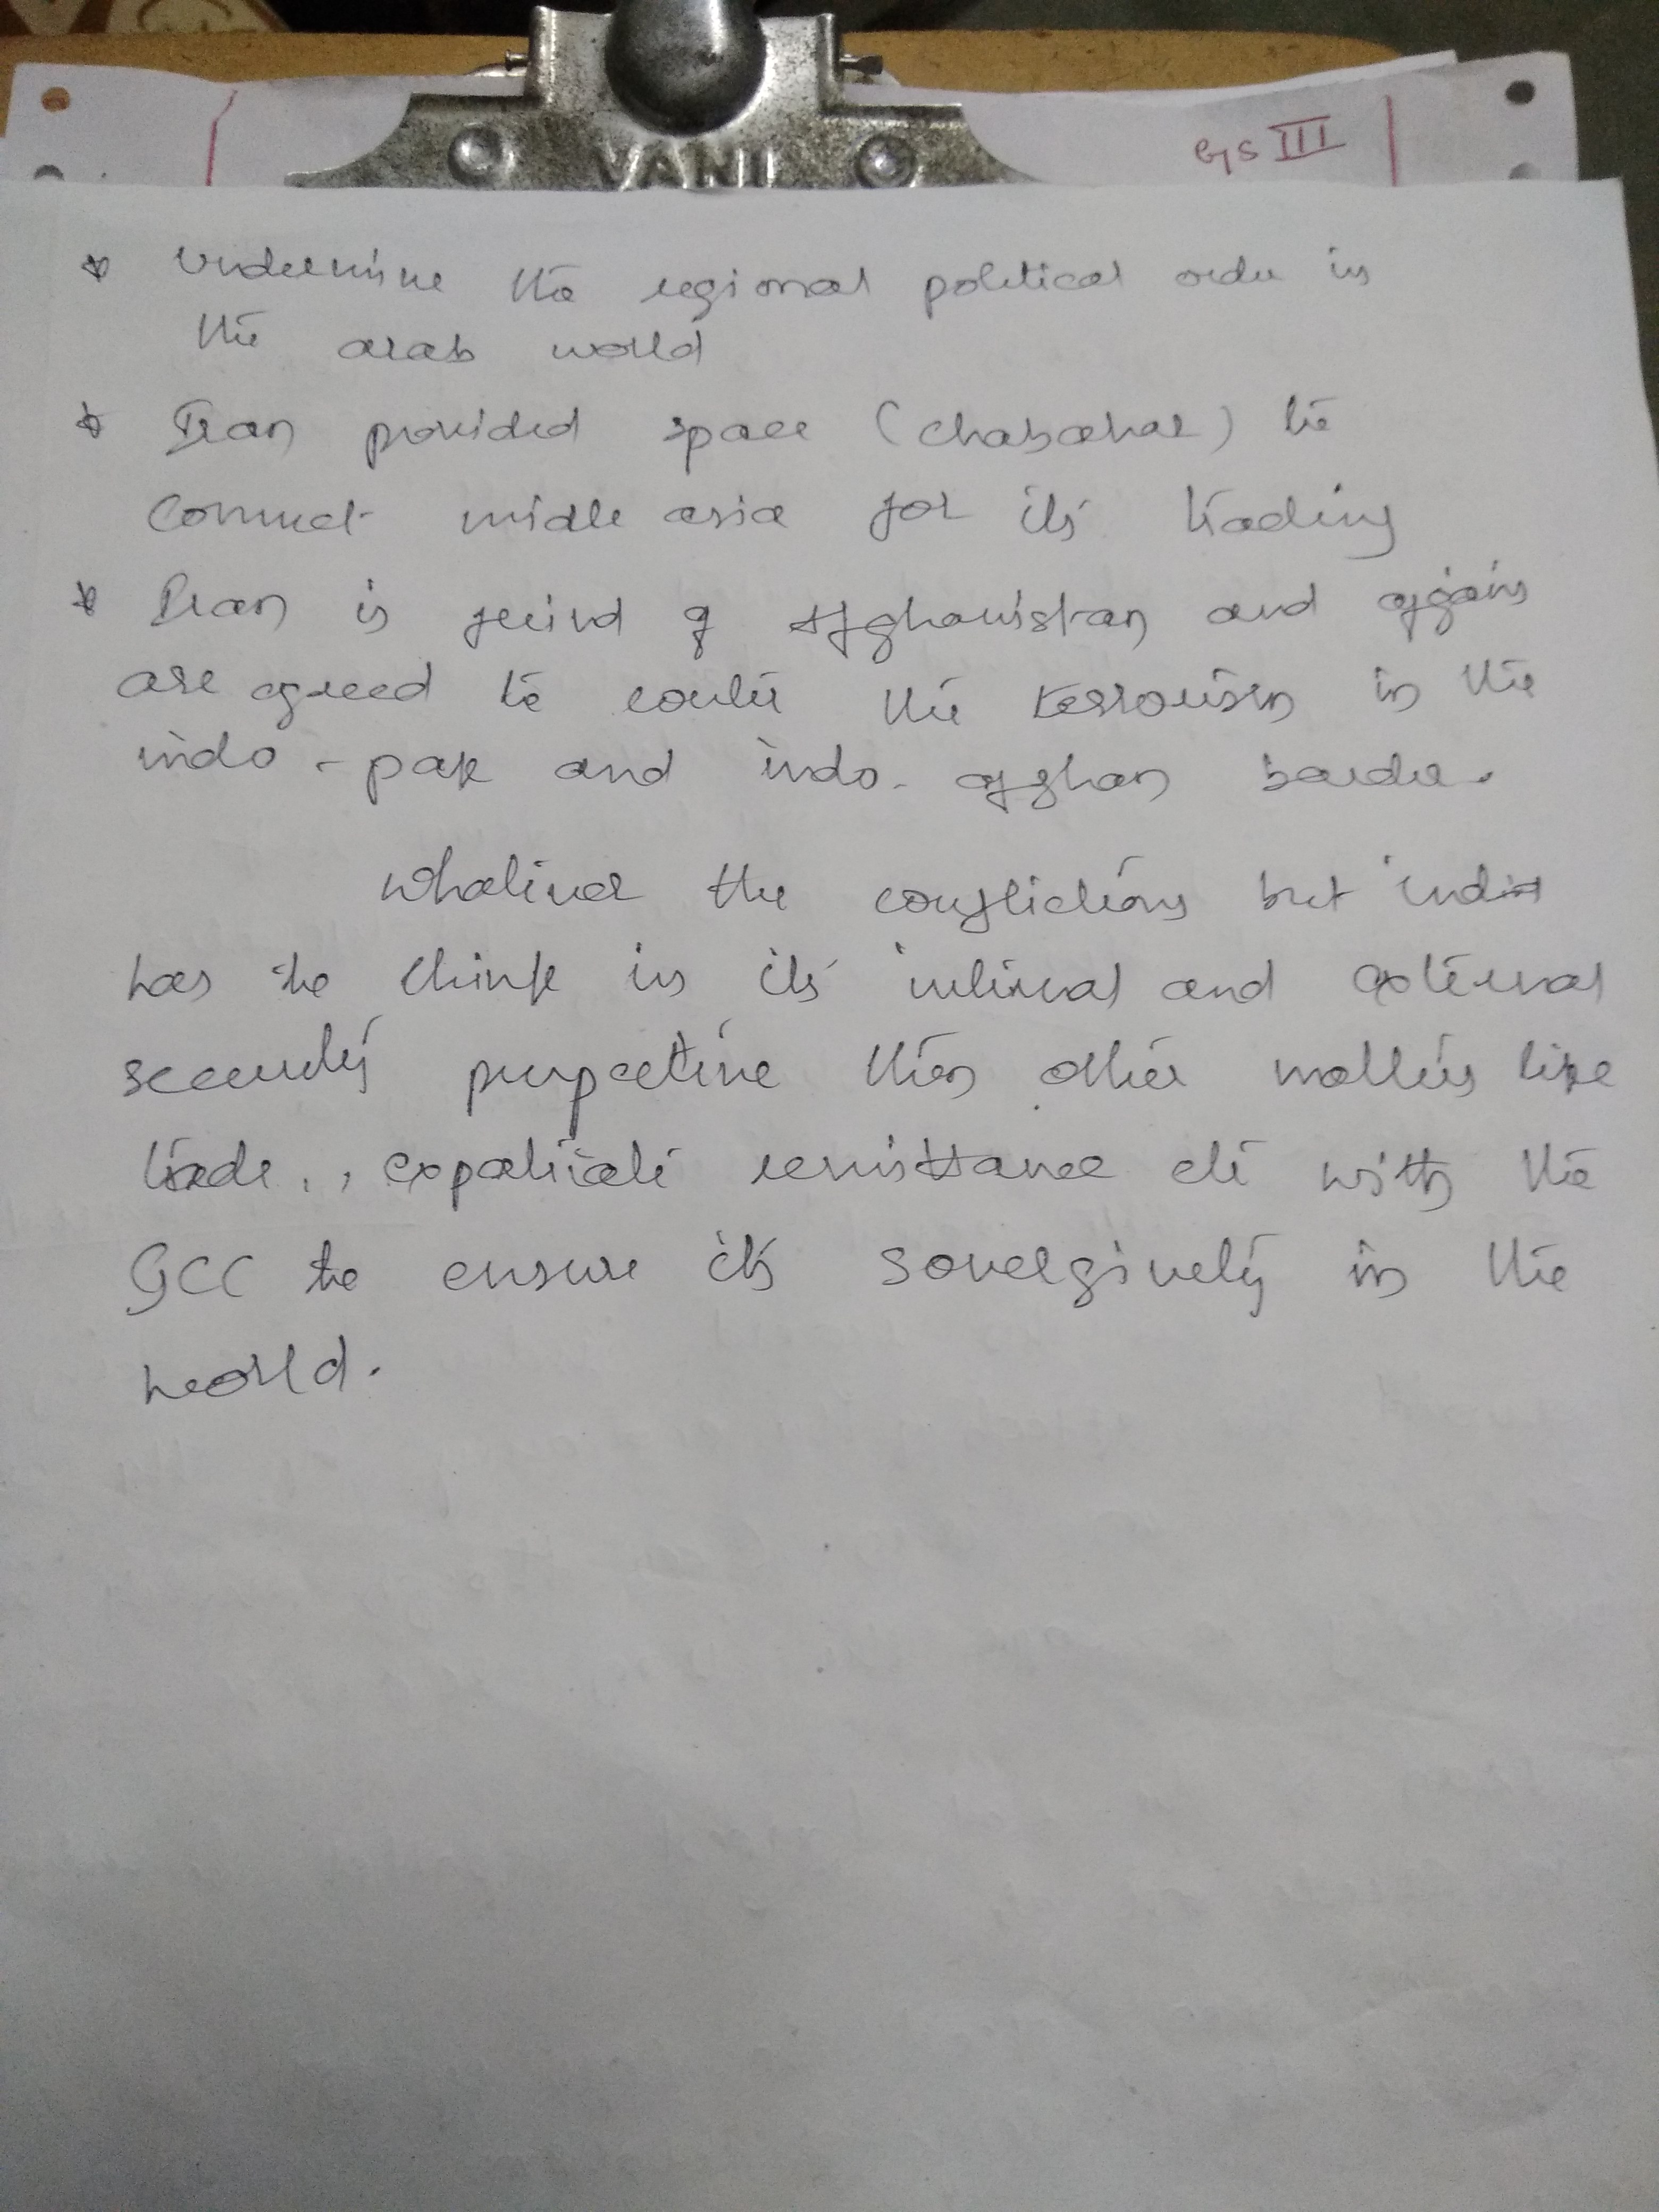 VANI
GS III
* Undermine the regional political order in
the arab world
* Iran provided space (chabahar) to
connect midle asia for its trading
* Iran is freind of Afghanistan and afgains
are agreed to counter the terrorism in the
indo - pak and indo - afghan border.
Whatever the conflictions but india
has to think in its internal and external
security perspective then other matters like
trade, , expatriate remittance etc with the
GCC to ensure its sovergivety in the
world.